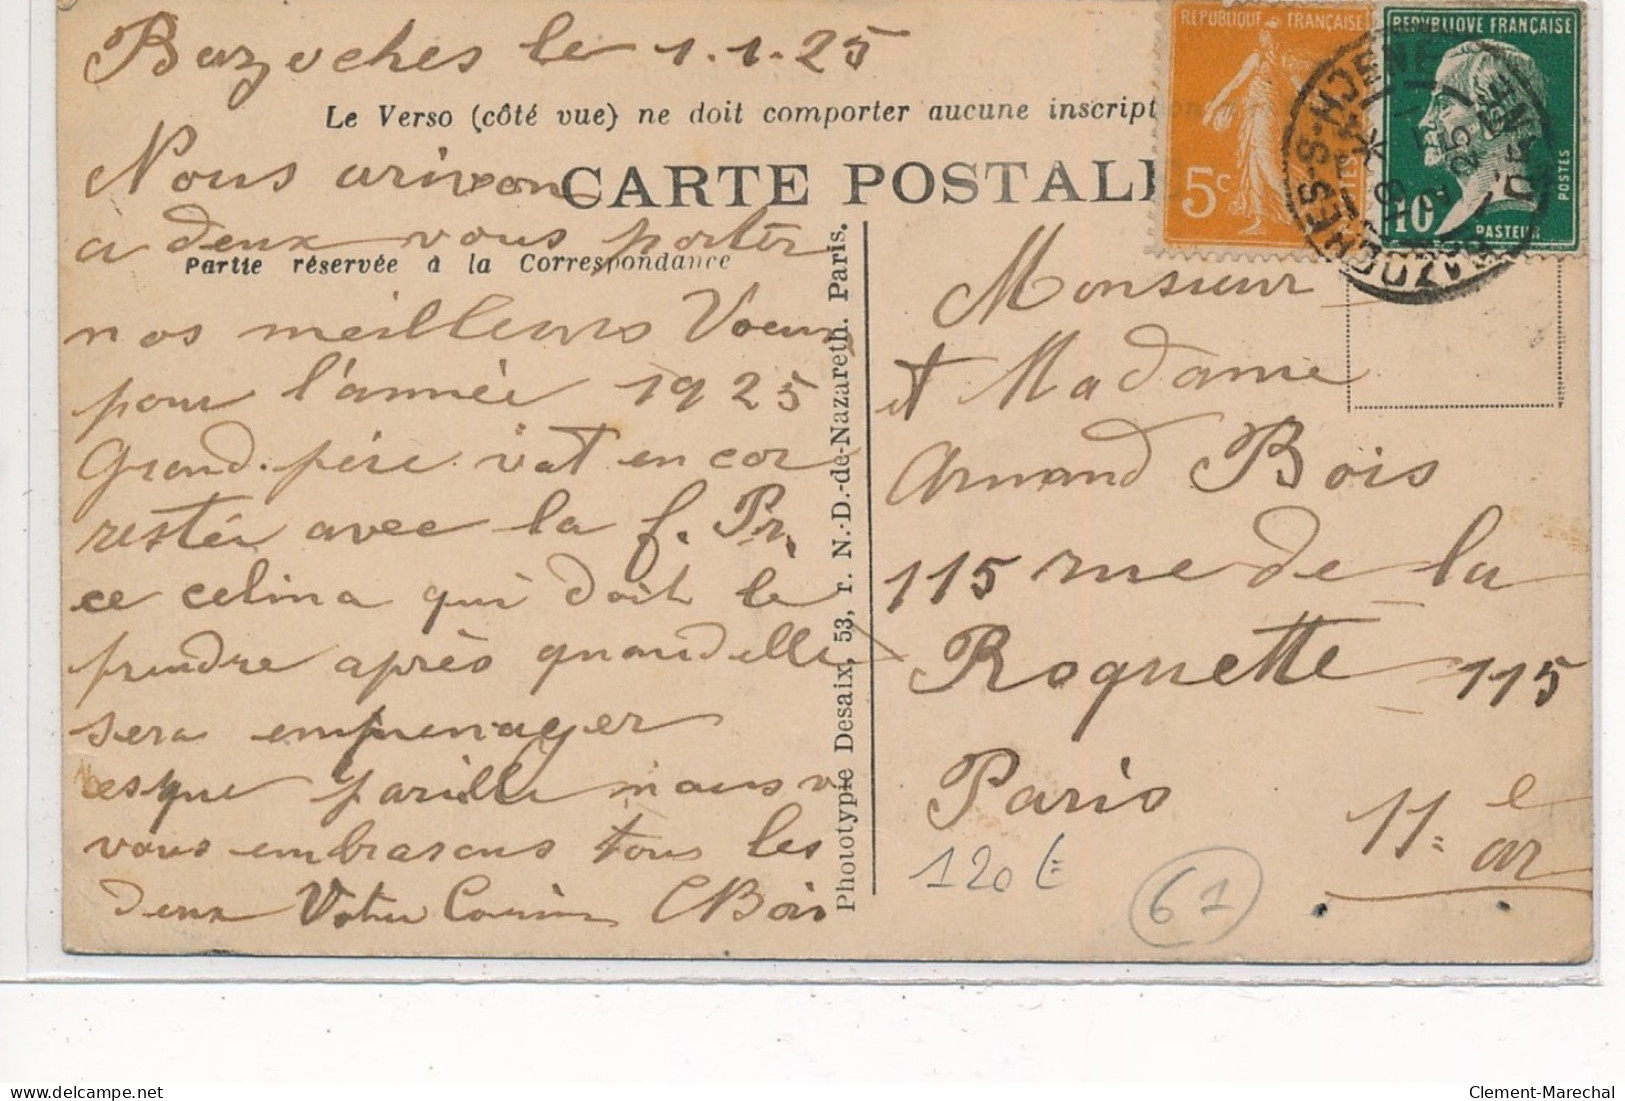 Bazoches le 1.1.25
Le Verso (côté vue) ne doit comporter aucune inscription
CARTE POSTALE
Partie réservée à la Correspondance
Nous arivon
a deux vous porter
nos meilleurs Voeux
pour l'année 1925
Grand-père vat encor
rester avec la f. Pr.
ce celina qui doit le
prendre après quand elle
sera emmenager
esque parille mous
vous embrasons tous les
deux Votre Cousin CBois
Phototypie Desaix, 53, r. N.-D.-de-Nazareth. Paris.
REPUBLIQUE FRANÇAISE
5c
POSTES
REPVBLIQVE FRANÇAISE
10c
PASTEUR
POSTES
BAZOCHES-S-HJENE
ORNE
Monsieur
et Madame
Armand Bois
115 rue de la
Roquette 115
Paris
11e ar
120 E
61
Clement-Marechal